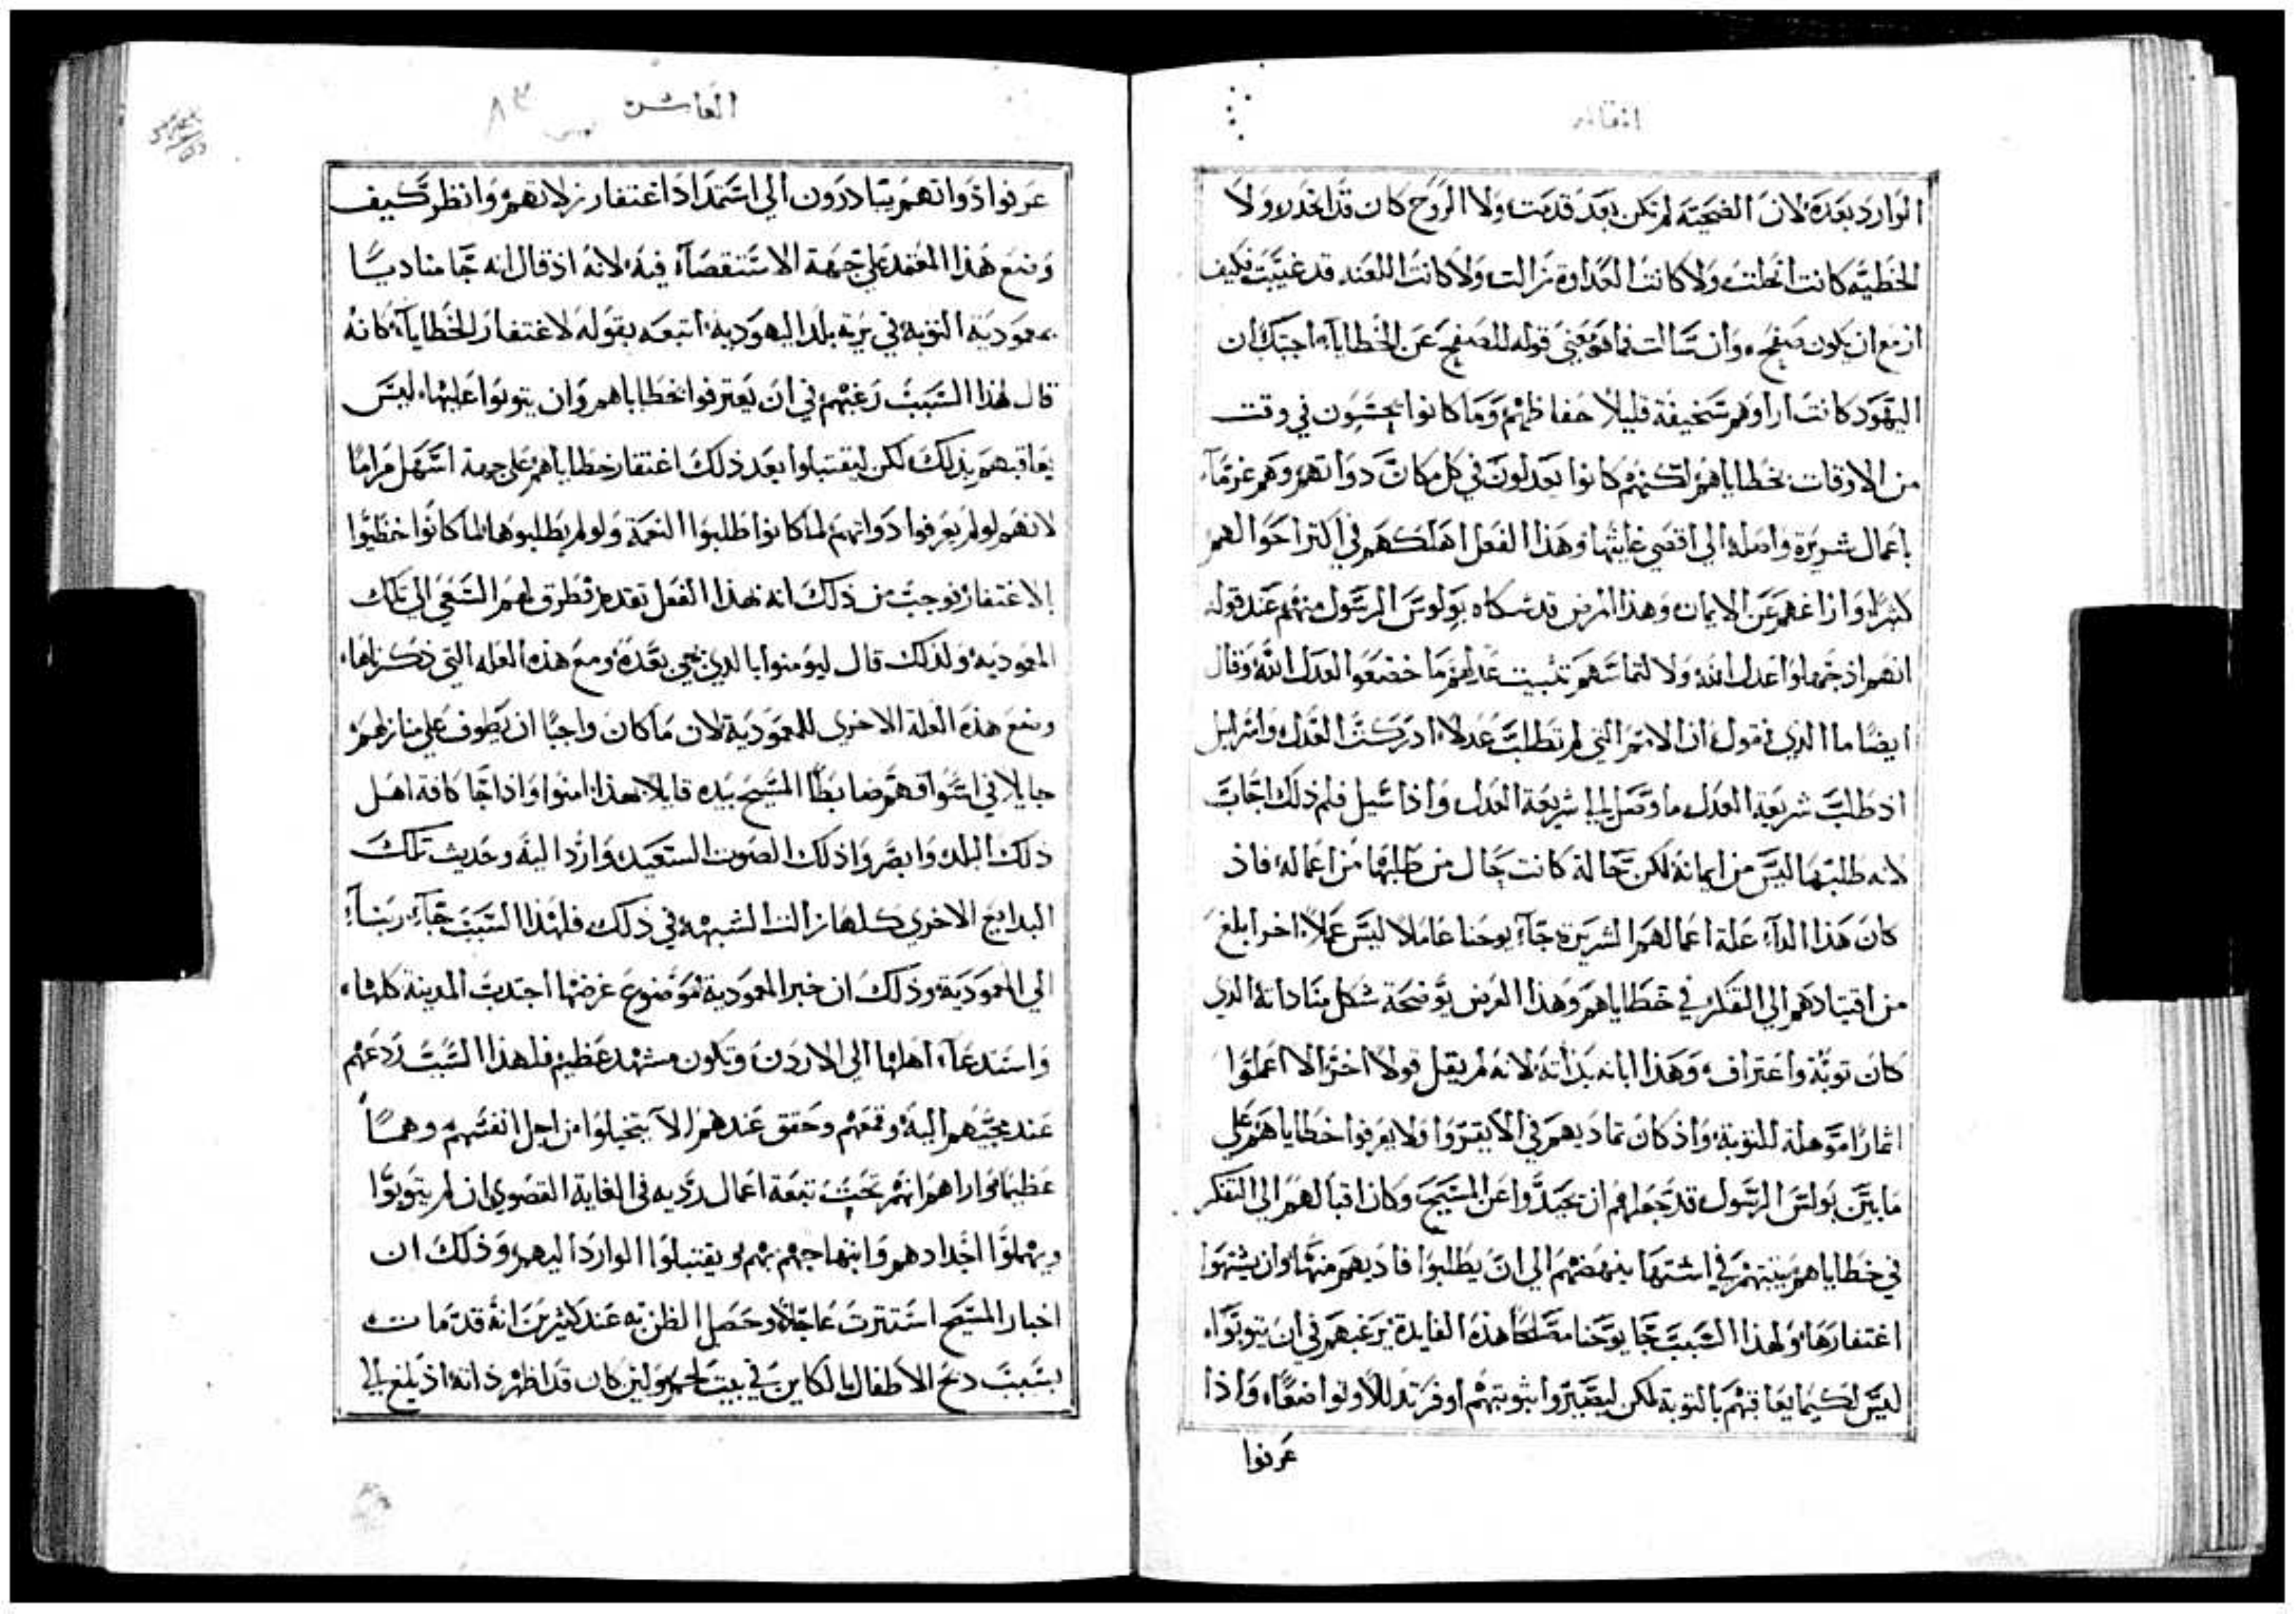 المقاله
الوارد بعده لان الضحيه لم تكن بعد قدمت ولا الروح كان قد انحدر ولا
الخطيه كانت انحلت ولا كانت العداوه زالت ولا كانت اللعنه قد غيبت فكيف
ازمع ان يكون صفح وان سالت فما هو معني قوله للصفح عن الخطايا اجبتك ان
اليهود كانت اراوهم سخيفة قليلا حفاظهم وما كانوا يحسون في وقت
من الاوقات بخطاياهم لكنهم كانوا يعدلون في كل مكان دواتهم وهم غرما
باعمال شريرة واصله الي اقصي غايتها وهذا الفعل اهلكهم في اكثر احوالهم
كثيرا وازاغهم عن الايمان وهذا المرض قد شكاه بولوس الرسول منهم عند قوله
انهم اذ جهلوا عدل الله ولالتماسهم تثبيت عدلهم ما خضعوا لعدل الله وقال
ايضا ما الذي نقول ان الامم التي لم تطلب عدلا ادركت العدل واسرايل
اذ طلب شريعة العدل ما وصل الي شريعة العدل واذا سيل فلم ذلك اجاب
لانه طلبها ليس من ايمانه لكن حاله كانت حال من طلبها من اعماله فاذ
كان هذا الداء علة اعمالهم الشريرة جاء يوحنا عاملا ليس عملا اخر ابلغ
من اقتيادهم الي التفكر في خطاياهم وهذا الغرض يوضحه شكل مناداته الذي
كان توبة واعتراف وهذا ابانه بذاته لانه لم يقل قولا اخر الا اعملوا
اثمارا موهلة للتوبه واذ كان تماديهم في الا يقروا ولا يعرفوا خطاياهم علي
ما بين بولس الرسول قد جعلهم ان يحيدوا عن المسيح وكان اقبالهم الي التفكر
في خطاياهم يثبتهم في اشتهاء ينهضهم الي ان يطلبوا فاديهم منها وان يشتهوا
اغتفارها ولهذا السبب جا يوحنا مصلحا هذه الفايدة يرغبهم في ان يتوبوا
ليس لكيما يعاقبهم بالتوبة لكن ليصيروا بتوبتهم اوفر تدللا وتواضعا واذا
عرفوا
العاشره ٨٣
عرفوا ذواتهم يتبادرون الي استمداد اغتفار زلاتهم وانظر كيف
وضع هذا المعمد علي جهة الاستقصاء فيه لانه اذ قال انه جا مناديا
بمعمودية التوبه في برية بلد اليهودية اتبعه بقوله لاغتفار الخطايا كانه
قال لهذا السبب رغبهم في ان يعترفوا بخطاياهم وان يتوبوا عليها ليس
يعاقبهم بذلك لكن ليقتبلوا بعد ذلك اغتفار خطاياهم علي جهة اسهل مراما
لانهم لو لم يعرفوا دواتهم لما كانوا طلبوا النعمة ولو لم يطلبوها لما كانوا حظيوا
بالاغتفار فوجب من ذلك انه بهذا الفعل تقدم فطرق لهم السعي الي تلك
المعموديه ولذلك قال ليومنوا بالذي يجي بعده ومع هذه العله التي ذكرناها
وضع هذه العله الاخري للمعمودية لان ما كان واجبا ان يطوف علي منازلهم
جايلا في اسواقهم ضابطا المسيح بيده قايلا بهذا امنوا واذا جا كافة اهل
ذلك البلد وابصروا ذلك الصوت السعيد واردا اليه وحديث تلك
البدايع الاخري كلها زالت الشبهه في ذلك فلهذا السبب جاء ربنا
الي المعمودية وذلك ان خبر المعمودية وموضوع غرضها اجتذبت المدينة كلها
واستدعاء اهلها الي الاردن وتكون مشهد عظيم فلهذا السبب ردعهم
عند مجيهم اليه وقمعهم وحقق عندهم الا يتخيلوا من اجل انفسهم وهما
عظيما واراهم انهم تحت تبعة اعمال رديه في الغاية القصوي ان لم يتوبوا
ويهملوا اجدادهم وابتهاجهم بهم ويقتبلوا الوارد اليهم وذلك ان
اخبار المسيح استترت عاجلا وحصل الظن به عند كثيرين انه قد مات
بسبب ذبح الاطفال الكاين في بيت لحم ولين كان قد اظهر ذاته اذ بلغ الي